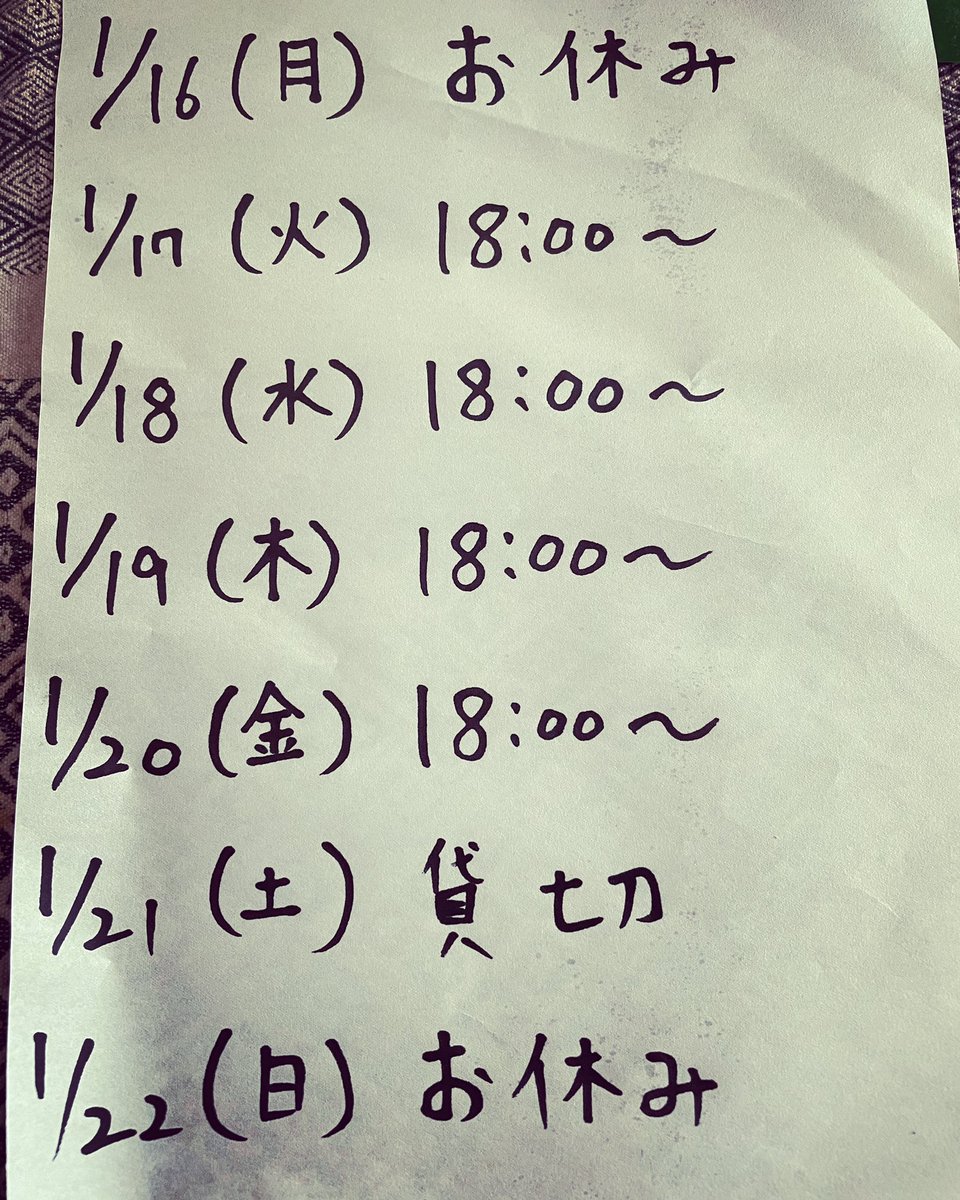 1/16(月) お休み
1/17(火) 18:00〜
1/18(水) 18:00〜
1/19(木) 18:00〜
1/20(金) 18:00〜
1/21(土) 貸切
1/22(日) お休み